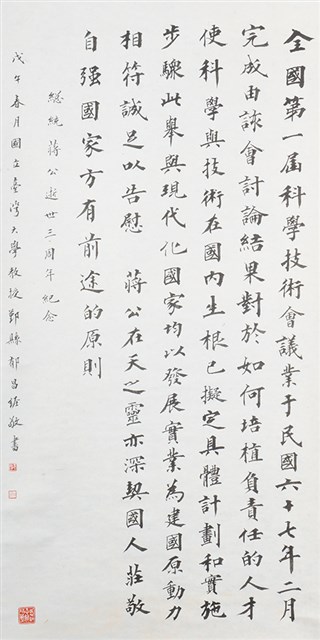 全國第一屆科學技術會議業于民國六十七年二月
完成由該會討論結果對於如何培植負責任的人才
使科學與技術在國內生根已擬定具體計劃和實施
步驟此舉與現代化國家均以發展實業為建國原動力
相符誠足以告慰 蔣公在天之靈亦深契國人莊敬
自强國家方有前途的原則
總統蔣公逝世三周年紀念
戊午春月國立臺灣大學教授鄞縣郁昌經敬書